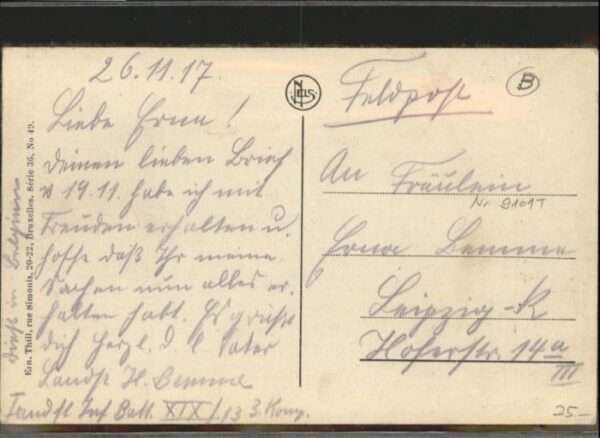 26.11.17.
Liebe Erna!
Deinen lieben Brief
v 19.11. habe ich mit
Freuden erhalten u.
hoffe daß Ihr meine
Sachen nun alles er-
halten habt. Es grüßt
dich herzl. d. l. Vater
Landst. H. Bemme
Landst Inf Batt. XIX/13 3. Komp.
in Belgien
Ern. Thill, rue Simonis, 20-22, Bruxelles. Série 36, No 49.
NELS
Feldpost
B
An Fräulein
Nr. 9101T
Erna Bemme
Leipzig-R
Hoferstr. 14 a
III
25.-